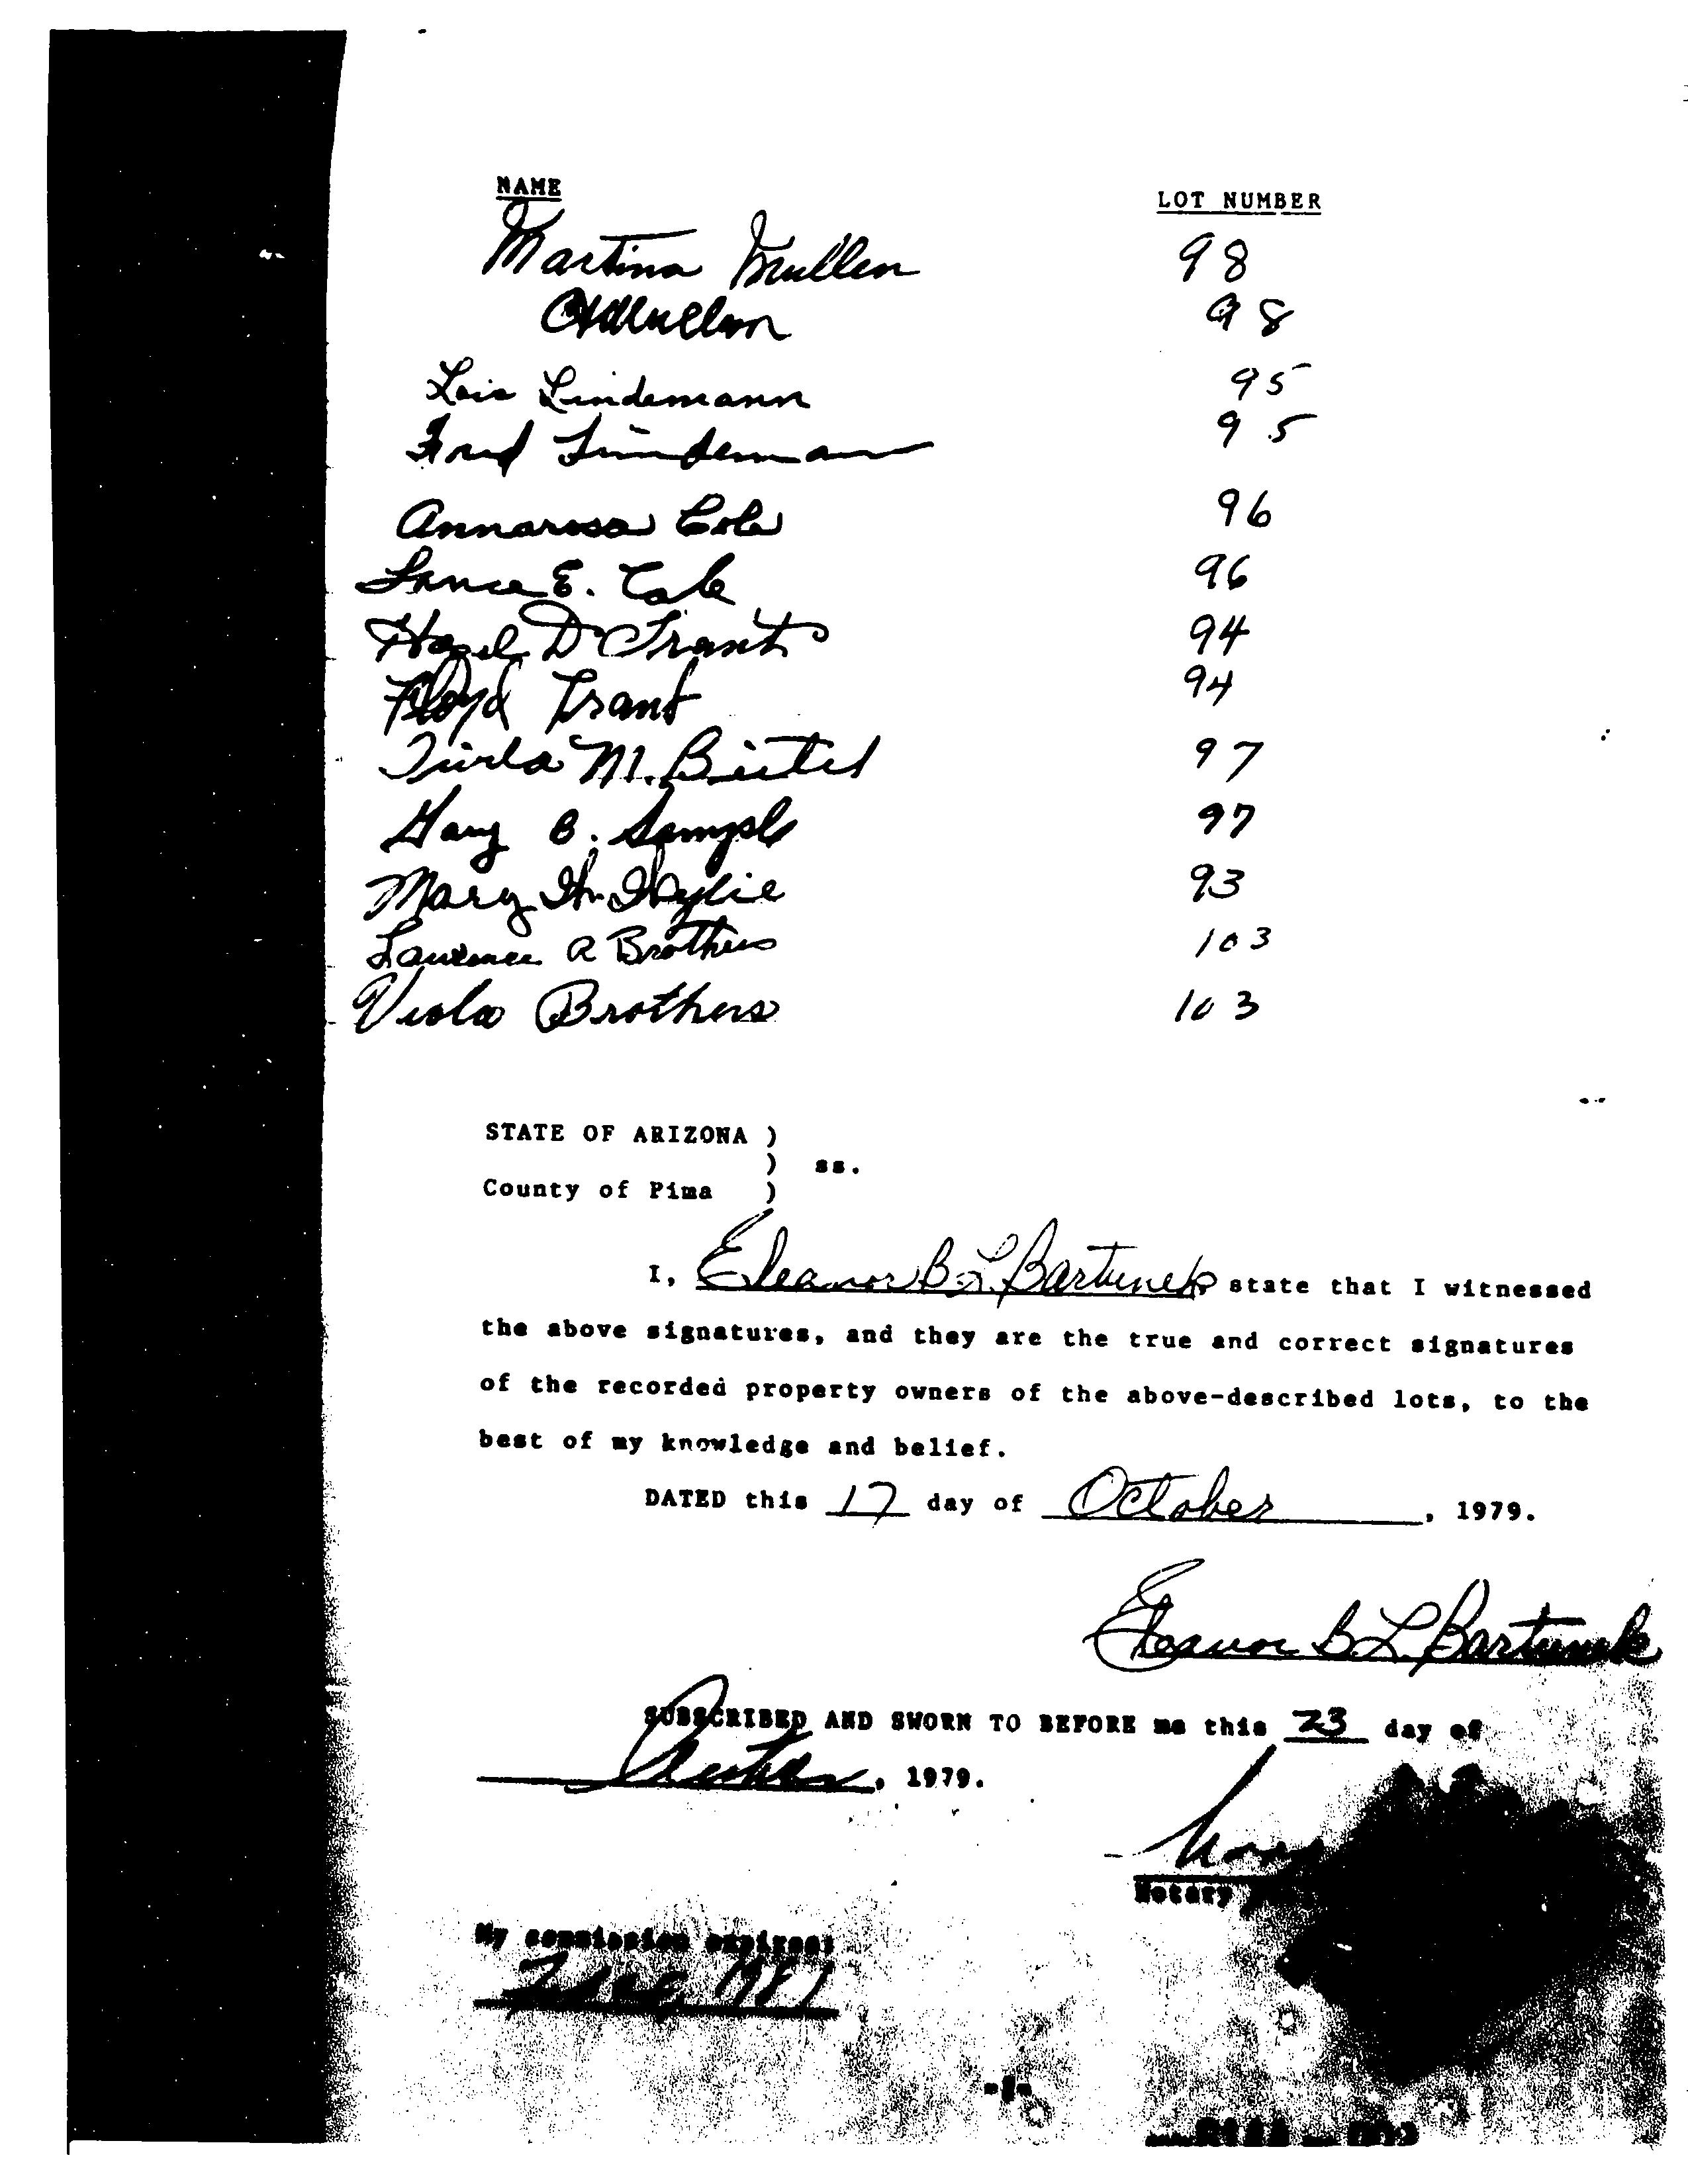 NAME LOT NUMBER
Martina Mullen 98
Mullen 98
Lois Lindemann 95
Fred Lindemann 95
Annarosa Cole 96
Lance E. Cole 96
Hazel D Trant 94
Floyd Trant 94
M. 97
B. 97
Mary W. Wylie 93
Lawrence A Brothers 103
Viola Brothers 103
STATE OF ARIZONA )
) ss.
County of Pima )
I, Eleanor B. L. Bartunek state that I witnessed
the above signatures, and they are the true and correct signatures
of the recorded property owners of the above-described lots, to the
best of my knowledge and belief.
DATED this 17 day of October, 1979.
Eleanor B. L. Bartunek
SUBSCRIBED AND SWORN TO BEFORE me this 23 day of
October, 1979.
Notary
My commission expires:
1981